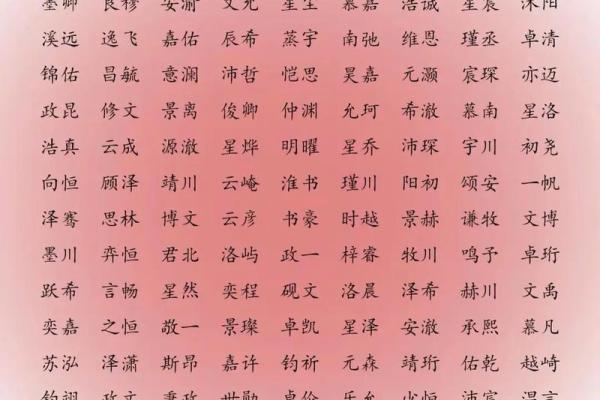 墨卿 良穆 安渝 文尧 星尘 慕嘉 浩诚 星宸 沭阳
溪远 逸飞 嘉佑 辰希 蒸宇 南弛 维恩 瑾丞 卓清
锦佑 昌毓 意澜 沛哲 恺思 昊嘉 元灏 宸琛 亦迈
政昆 修文 景离 俊卿 仲渊 允珂 希澈 慕南 星洛
浩真 云成 源澈 星烨 明曜 星乔 沛琛 宇川 初尧
向恒 顾泽 靖川 云崦 淮书 瑾川 阳初 颂安 一帆
泽骞 思林 博文 云彦 书豪 时越 景赫 谦牧 文博
墨川 弈恒 君北 洛屿 政一 梓睿 牧川 鸣予 卓珩
跃希 言畅 星然 奕程 砚文 洛晨 泽希 赫川 文禹
奕嘉 之恒 敬一 景璨 卓凯 星泽 安澈 承熙 慕凡
苏泓 泽潇 斯昂 嘉许 钧祈 元森 靖珩 佑乾 越崎
钧翊 政文 秉政 世勋 卓伦 乐允 少恒 沛宸 温言